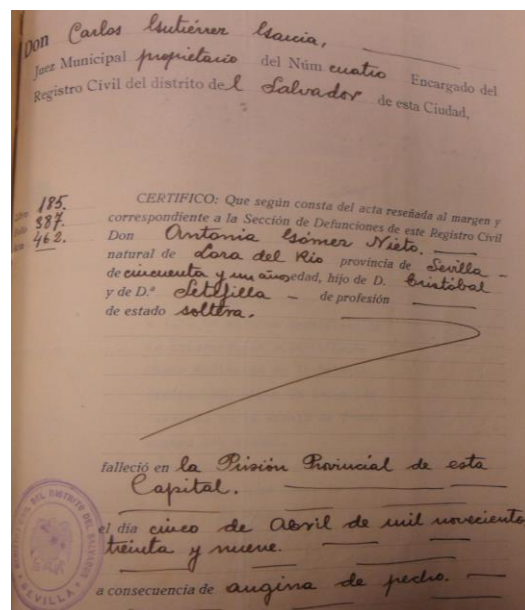 Don Carlos Gutiérrez Garcia,
Juez Municipal propietario del Núm cuatro Encargado del
Registro Civil del distrito del Salvador de esta Ciudad,
185.
387.
462.
CERTIFICO: Que según consta del acta reseñada al margen y
correspondiente a la Sección de Defunciones de este Registro Civil
Don Antonia Gómez Nieto.
natural de Lora del Rio provincia de Sevilla
de cincuenta y un años edad, hijo de D. Cristóbal
y de D.ª Setefilla de profesión
de estado soltera.
falleció en la Prisión Provincial de esta
Capital.
el día cinco de Abril de mil novecientos
treinta y nueve.
a consecuencia de angina de pecho.
DEL DISTRITO DEL SALVADOR
SEVILLA